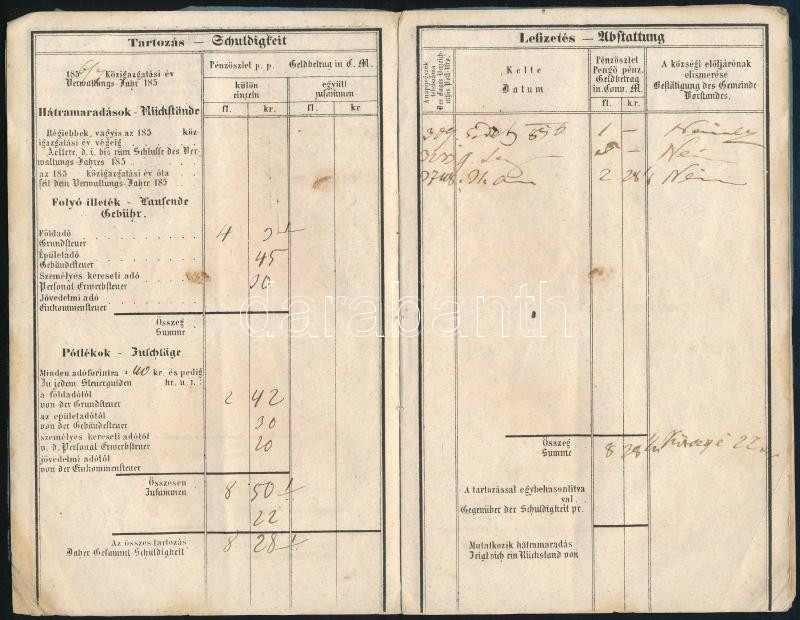 Tartozás — Schuldigkeit
185 Közigazgatási év
Verwaltungs-Jahr 185
Pénzöszlet p. p. Geldbetrag in C. M.
külön
einzeln
együtt
zusammen
fl. kr. fl. kr.
Hátramaradások - Rückstände
Régiebbek, vagyis az 185 köz
igazgatási év végeig
Aeltere, d. i. bis zum Schlusse des Ver-
waltungs-Jahres 185
az 185 közigazgatási év óta
seit dem Verwaltungs-Jahre 185
Folyó illeték - Laufende
Gebühr.
Földadó
Grundsteuer
4
Épületadó
Gebäudesteuer
45
Személyes kereseti adó
Personal Erwerbsteuer
30
Jövedelmi adó
Einkommensteuer
Összeg
Summe
Pótlékok - Zuschläge
Minden adóforintra 40 kr. és pedig
Zu jedem Steuergulden kr. u. z.
a földadótól
von der Grundsteuer
2 42
az epületadótól
von der Gebäudesteuer
30
személyes kereseti adótól
v. d. Personal Erwerbsteuer
20
jövedelmi adótól
von der Einkommensteuer
Összesen
Zusammen
8 50
22
Az összes tartozás
Daher Gesammt Schuldigkeit
8 28
Lefizetés — Abstattung
Kelte
Datum
Pénzöszlet
Pengő pénz.
Geldbetrag
in Conv. M.
fl. kr.
A községi elöljárónak
elismerése
Bestätigung des Gemeinde
Vorstandes.
1 —
5 —
2 28
Összeg
Summe
8 28
22
A tartozással egybehasonlitva
val
Gegenüber der Schuldigkeit pr.
Mutatkozik hátramaradás
Zeigt sich ein Rückstand von
darabanth